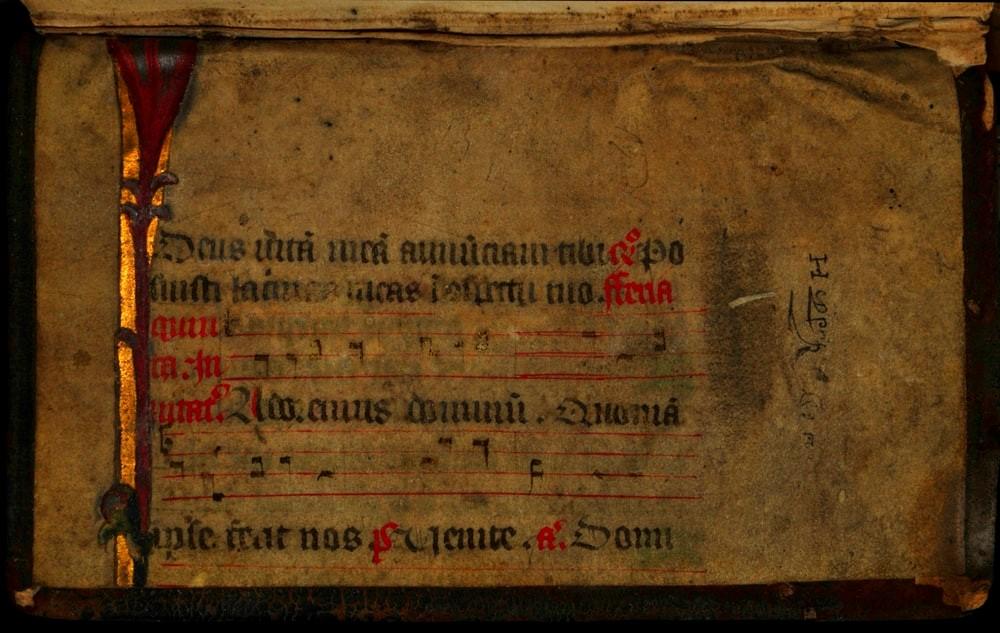 Deus uitā meā annūciaui tibi ℟. Po
suisti lacrimas meas ī ꝯspectu tuo. Feria
quin
ta. In
uitat. Adoremus dominū. Quoniā
ipse fecit nos ps Uenite. a. Domi